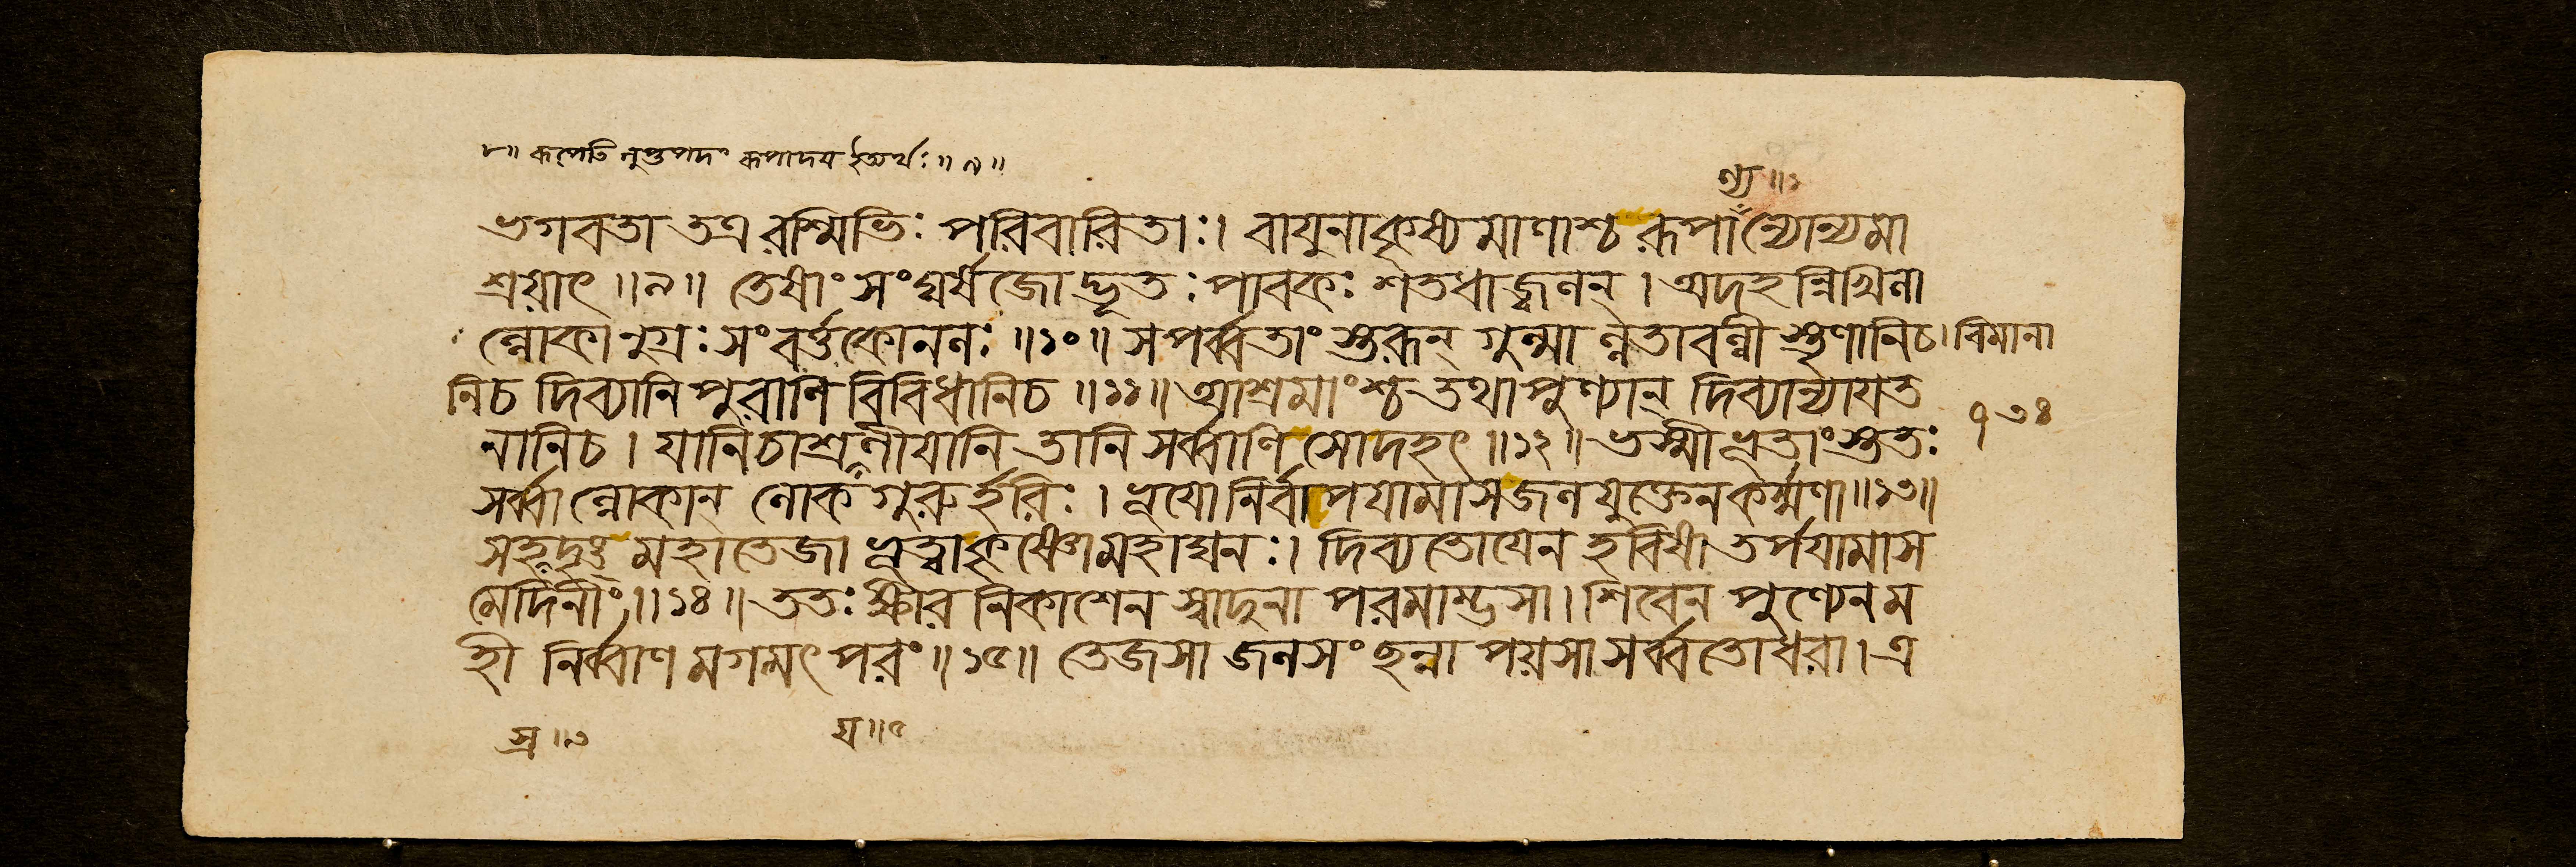 ৮॥ রূপেতি লুপ্তপদং রূপাদয় ইত্যর্থঃ॥৯॥
ণ্য॥১
ভগবতা তত্র রশ্মিভিঃ পরিবারিতাঃ। বায়ুনাকৃষ্যমাণাশ্চ রূপান্যোন্যমা
শ্রয়াৎ॥৯॥ তেষাং সংঘর্ষজোদ্ভূতঃ পাবকঃ শতধাজ্বলন্। অদহন্নিখিলা
ল্লোকানুগ্রঃ সংবর্ত্তকোনলঃ॥১০॥ সপর্ব্বতাংস্তরূন্ গুল্মান্ লতাবল্লীস্তৃণানিচ। বিমানা
নিচ দিব্যানি পুরাণি বিবিধানিচ॥১১॥ আশ্রমাংশ্চ তথা পুণ্যান্ দিব্যান্যায়ত
১৩৪
নানিচ। যানিচাশ্রয়ণীয়ানি তানি সর্ব্বাণি সোদহৎ॥১২॥ ভস্মীভূতাংস্ততঃ
সর্ব্বাল্লোকান্ লোকগুরুর্হরিঃ। ভূয়ো নির্বাপয়ামাস জলযুক্তেন কর্ম্মণা॥১৩॥
সহস্রদৃঙ্ মহাতেজা ভূত্বা কৃষ্ণো মহাঘনঃ। দিব্যতোয়েন হবিষা তর্পয়ামাস
মেদিনীং॥১৪॥ ততঃ ক্ষীরনিকাশেন স্বাদুনা পরমাম্ভসা। শিবেন পুণ্যেন ম
হী নির্ব্বাণমগমৎ পরং॥১৫॥ তেজসা জলসংছন্না পয়সা সর্ব্বতোধরা। এ
স্র॥৩
য়॥৫